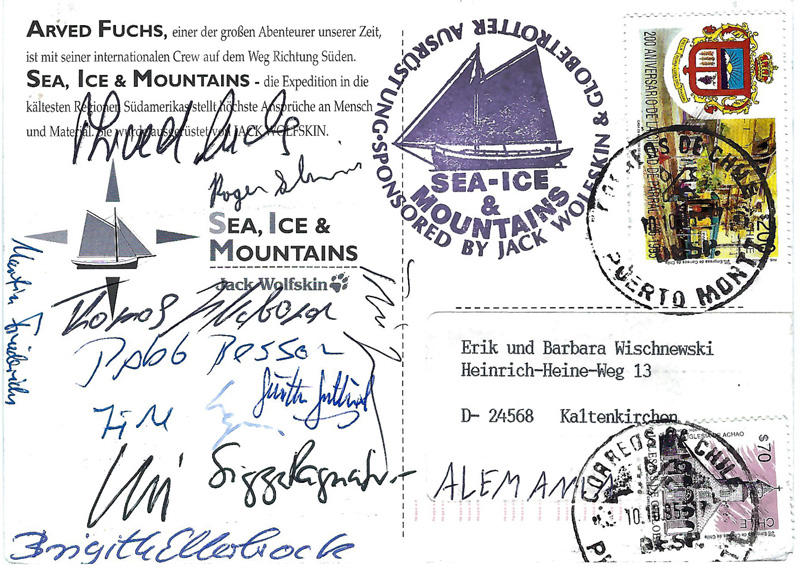 ARVED FUCHS, einer der großen Abenteurer unserer Zeit,
ist mit seiner internationalen Crew auf dem Weg Richtung Süden.
SEA, ICE & MOUNTAINS - die Expedition in die
kältesten Regionen Südamerikas stellt höchste Ansprüche an Mensch
und Material. Sie wurde ausgerüstet von JACK WOLFSKIN.
Arved Fuchs
Roger
SEA, ICE &
MOUNTAINS
Jack Wolfskin
Martin Friederichs
Thomas
Pablo Besser
Sigga Ragnars
Brigitte Ellerbrock
SEA-ICE
&
MOUNTAINS
SPONSORED BY JACK WOLFSKIN & GLOBETROTTER AUSRÜSTUNG
200 ANIVERSARIO DE LA
200
CORREOS DE CHILE
PUERTO MONTT
Erik und Barbara Wischnewski
Heinrich-Heine-Weg 13
D- 24568 Kaltenkirchen
ALEMANIA
IGLESIA DE ACHAO
$70
CHILE
CORREOS DE CHILE
10.10.95